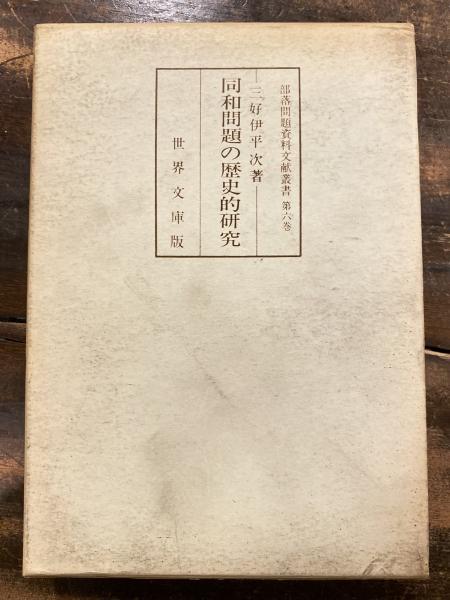 部落問題資料文献叢書 第六巻
三好伊平次著
同和問題の歴史的研究
世界文庫版